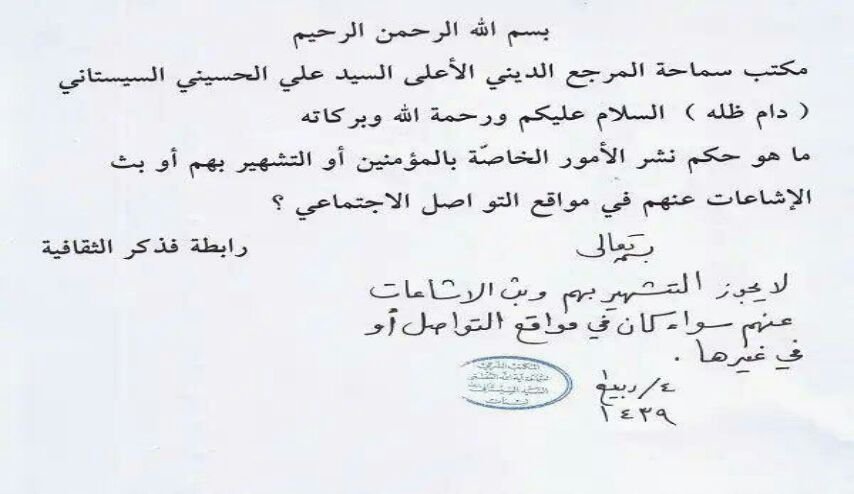 بسم الله الرحمن الرحيم
مكتب سماحة المرجع الديني الأعلى السيد علي الحسيني السيستاني
( دام ظله ) السلام عليكم ورحمة الله وبركاته
ما هو حكم نشر الأمور الخاصّة بالمؤمنين أو التشهير بهم أو بث
الإشاعات عنهم في مواقع التو اصل الاجتماعي ؟
رابطة فذكر الثقافية
بسمه تعالى
لا يجوز التشهير بهم وبث الاشاعات
عنهم سواء كان في مواقع التواصل أو
في غيرها .
٤/ربيع
١٤٣٩
المكتب الشرعي
السيد السيستاني